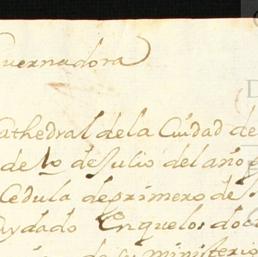 uernadora
athedral de la Ciudad de
de 1o de Julio del año
Cedula de primero de
uydado Enquelos doc
de su ministerio